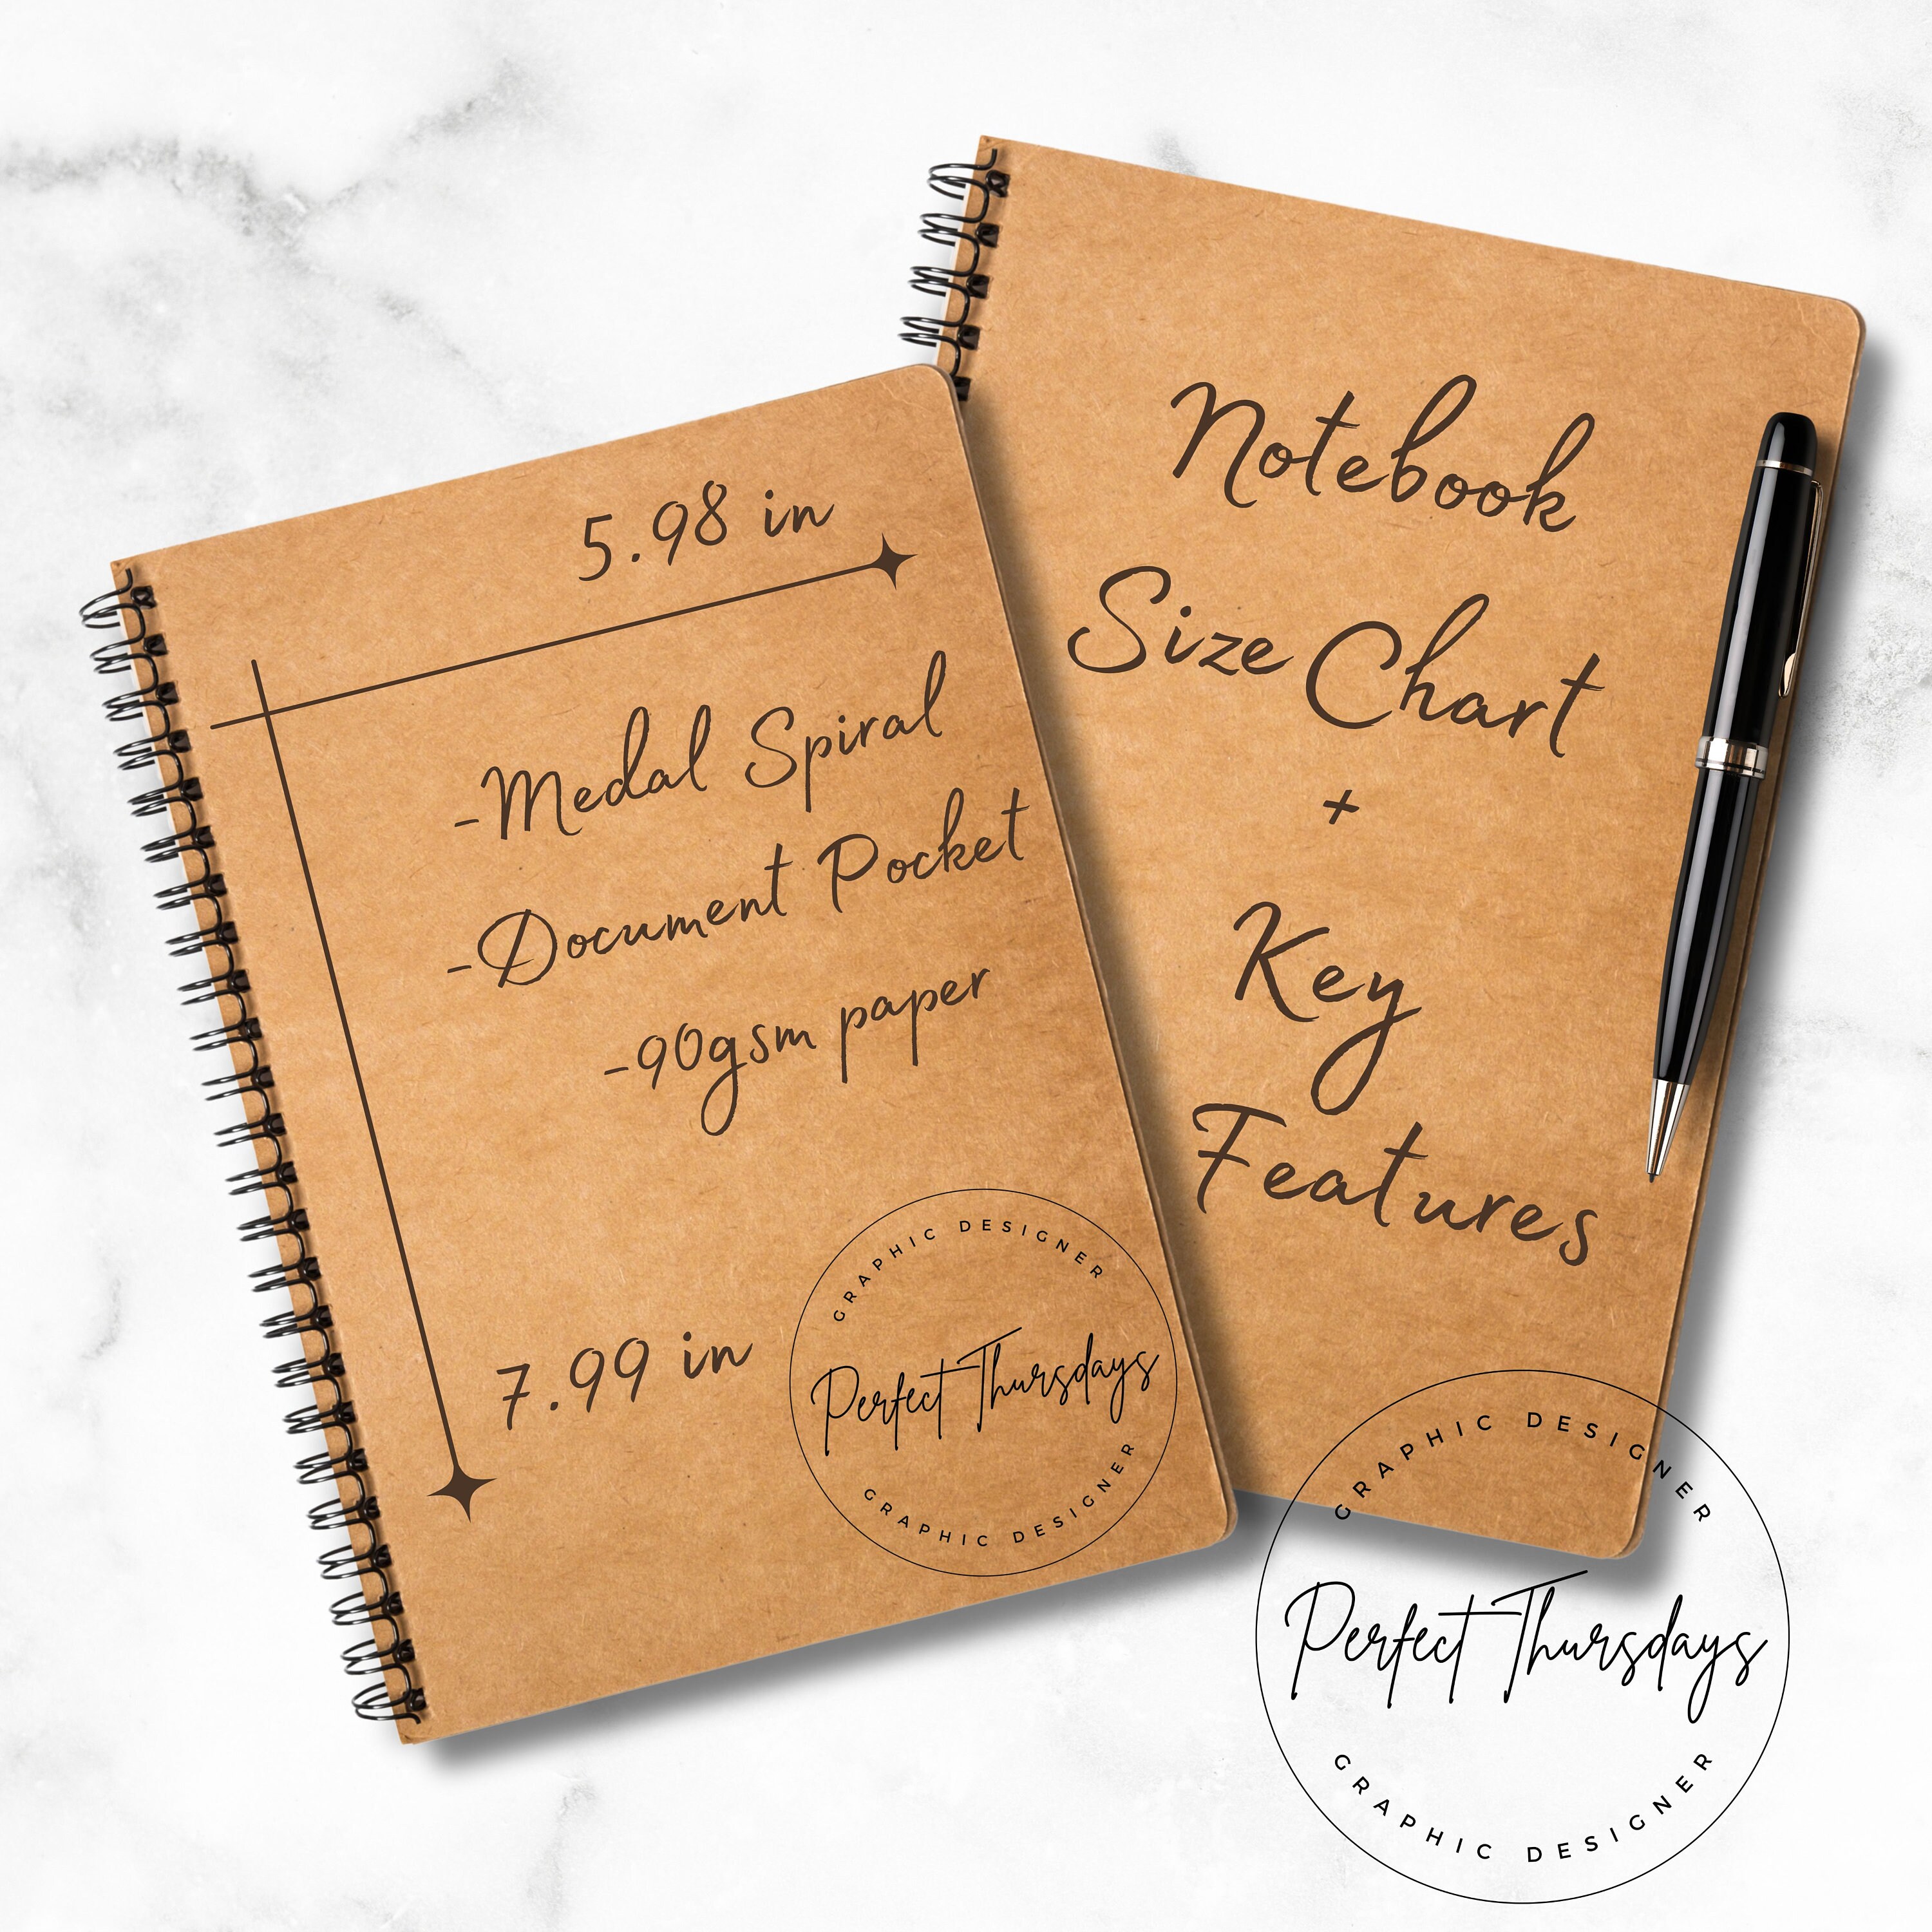 5.98 in
-Medal Spiral
-Document Pocket
-90gsm paper
7.99 in
GRAPHIC DESIGNER
Perfect Thursdays
GRAPHIC DESIGNER
Notebook
Size Chart
+
Key
Features
GRAPHIC DESIGNER
Perfect Thursdays
GRAPHIC DESIGNER